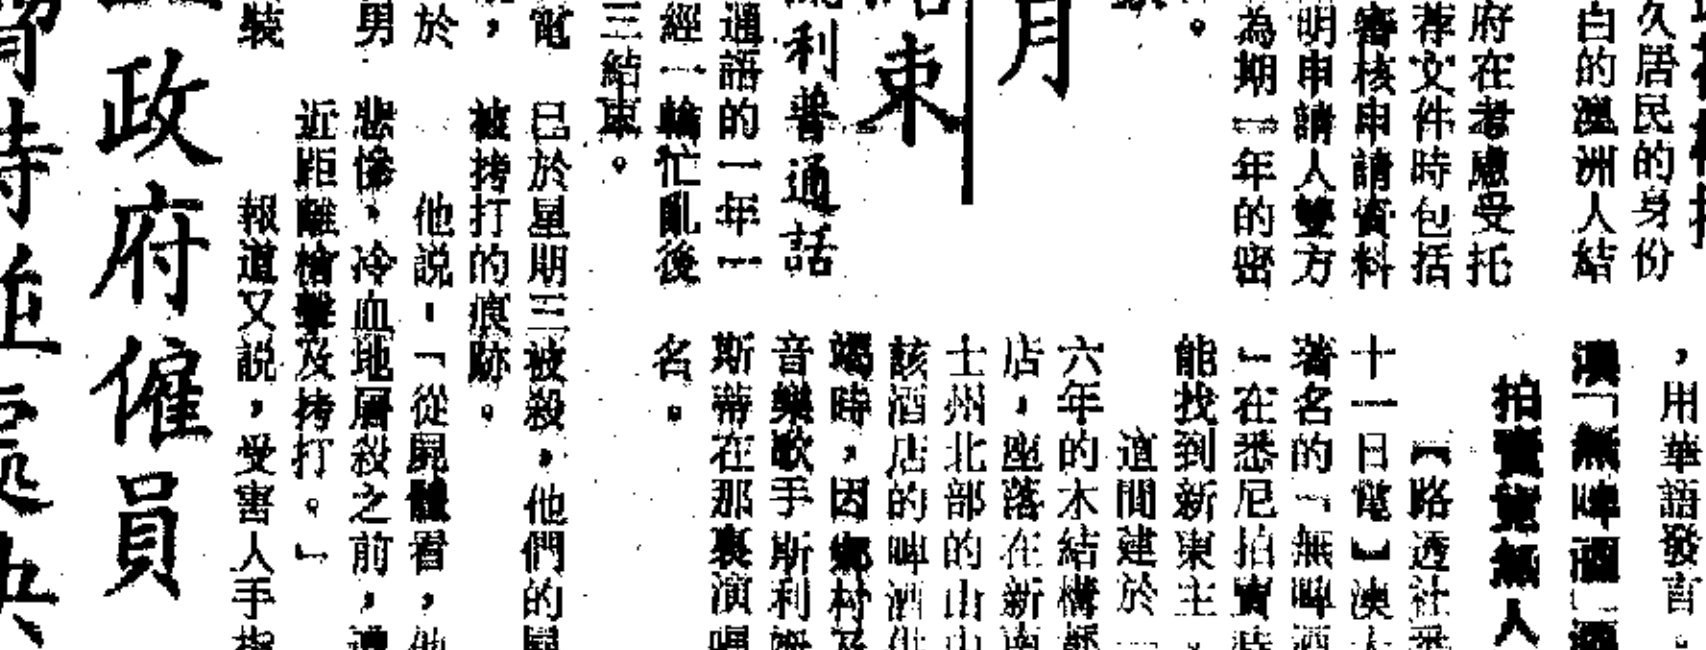 久居民的身份
白的澳洲人結
府在考慮受托
荐文件時包括
審核申請資料
明申請人雙方
為期一年的密
。
月
束
利普通話
通語的一年一
經一輪忙亂後
三結束。
，用華語發言。
澳「無啤酒」酒
拍賣竟無人
【路透社悉
十一日電】澳大
著名的「無啤酒
」在悉尼拍賣時
能找到新東主。
這間建於一
六年的木結構
店，座落在新南
士州北部的山
該酒店的啤酒供
竭時，因鄉村及
音樂歌手斯利
斯蒂在那裏演唱
名。
電
已於星期三被殺，他們的屍
，
被拷打的痕跡。
於
他説：「從屍體看，他
男
悲慘，冷血地屠殺之前，遭
近距離槍擊及拷打。」
裝
報道又説，受害人手指
政府僱員